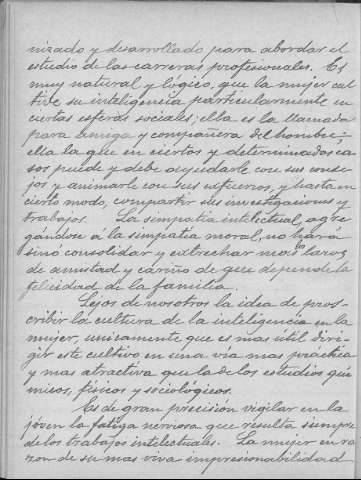 nizado y desarrollado para abordar el
estudio de las carreras profesionales. Es
muy natural y lógico, que la mujer cul
tive su inteligencia particularmente en
ciertas esferas sociales; ella es la llamada
para amiga y compañera del hombre:
ella la que en ciertos y determinados ca
sos puede y debe ayudarle con sus conse
jos y animarle con sus esfuerzos, y hasta en
cierto modo, compartir sus investigaciones y
trabajos. La simpatía intelectual, agre
gándose á la simpatía moral, no hará
sinó consolidar y estrechar mas los lazos
de amistad y cariño de que depende la
felicidad de la familia.
Lejos de nosotros la idea de pros-
cribir la cultura de la inteligencia en la
mujer, unicamente que es mas útil diri
gir este cultivo en una via mas práctica
y mas atractiva que la de los estudios quí
micos, físicos y sociológicos.
Es de gran precisión vigilar en la
jóven la fatiga nerviosa que resulta siempre
de los trabajos intelectuales. La mujer en ra
zon de su mas viva impresionabilidad